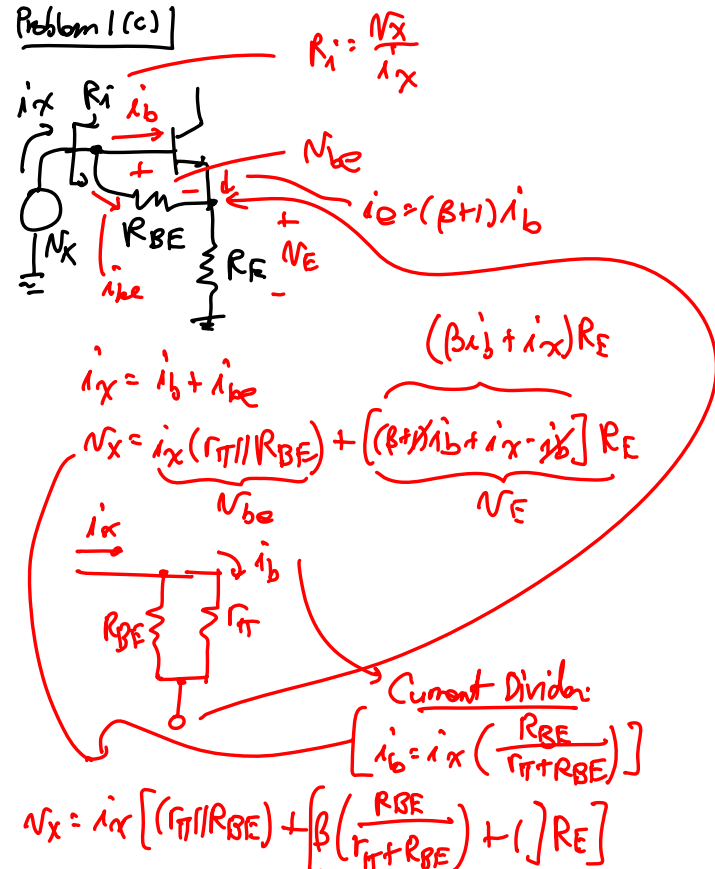 Problem 1(c)
Ri = vx/ix
ix Ri ib
+ − vbe
ie = (β+1)ib
vx RBE + vE −
ibe RE
(βib + ix)RE
ix = ib + ibe
vx = ix(rπ||RBE) + [(β+1)ib + ix - ib] RE
vbe vE
ix ib
RBE rπ
Current Divider:
[ib = ix (RBE/(rπ+RBE))]
vx = ix [(rπ||RBE) + [β(RBE/(rπ+RBE)) + 1] RE]